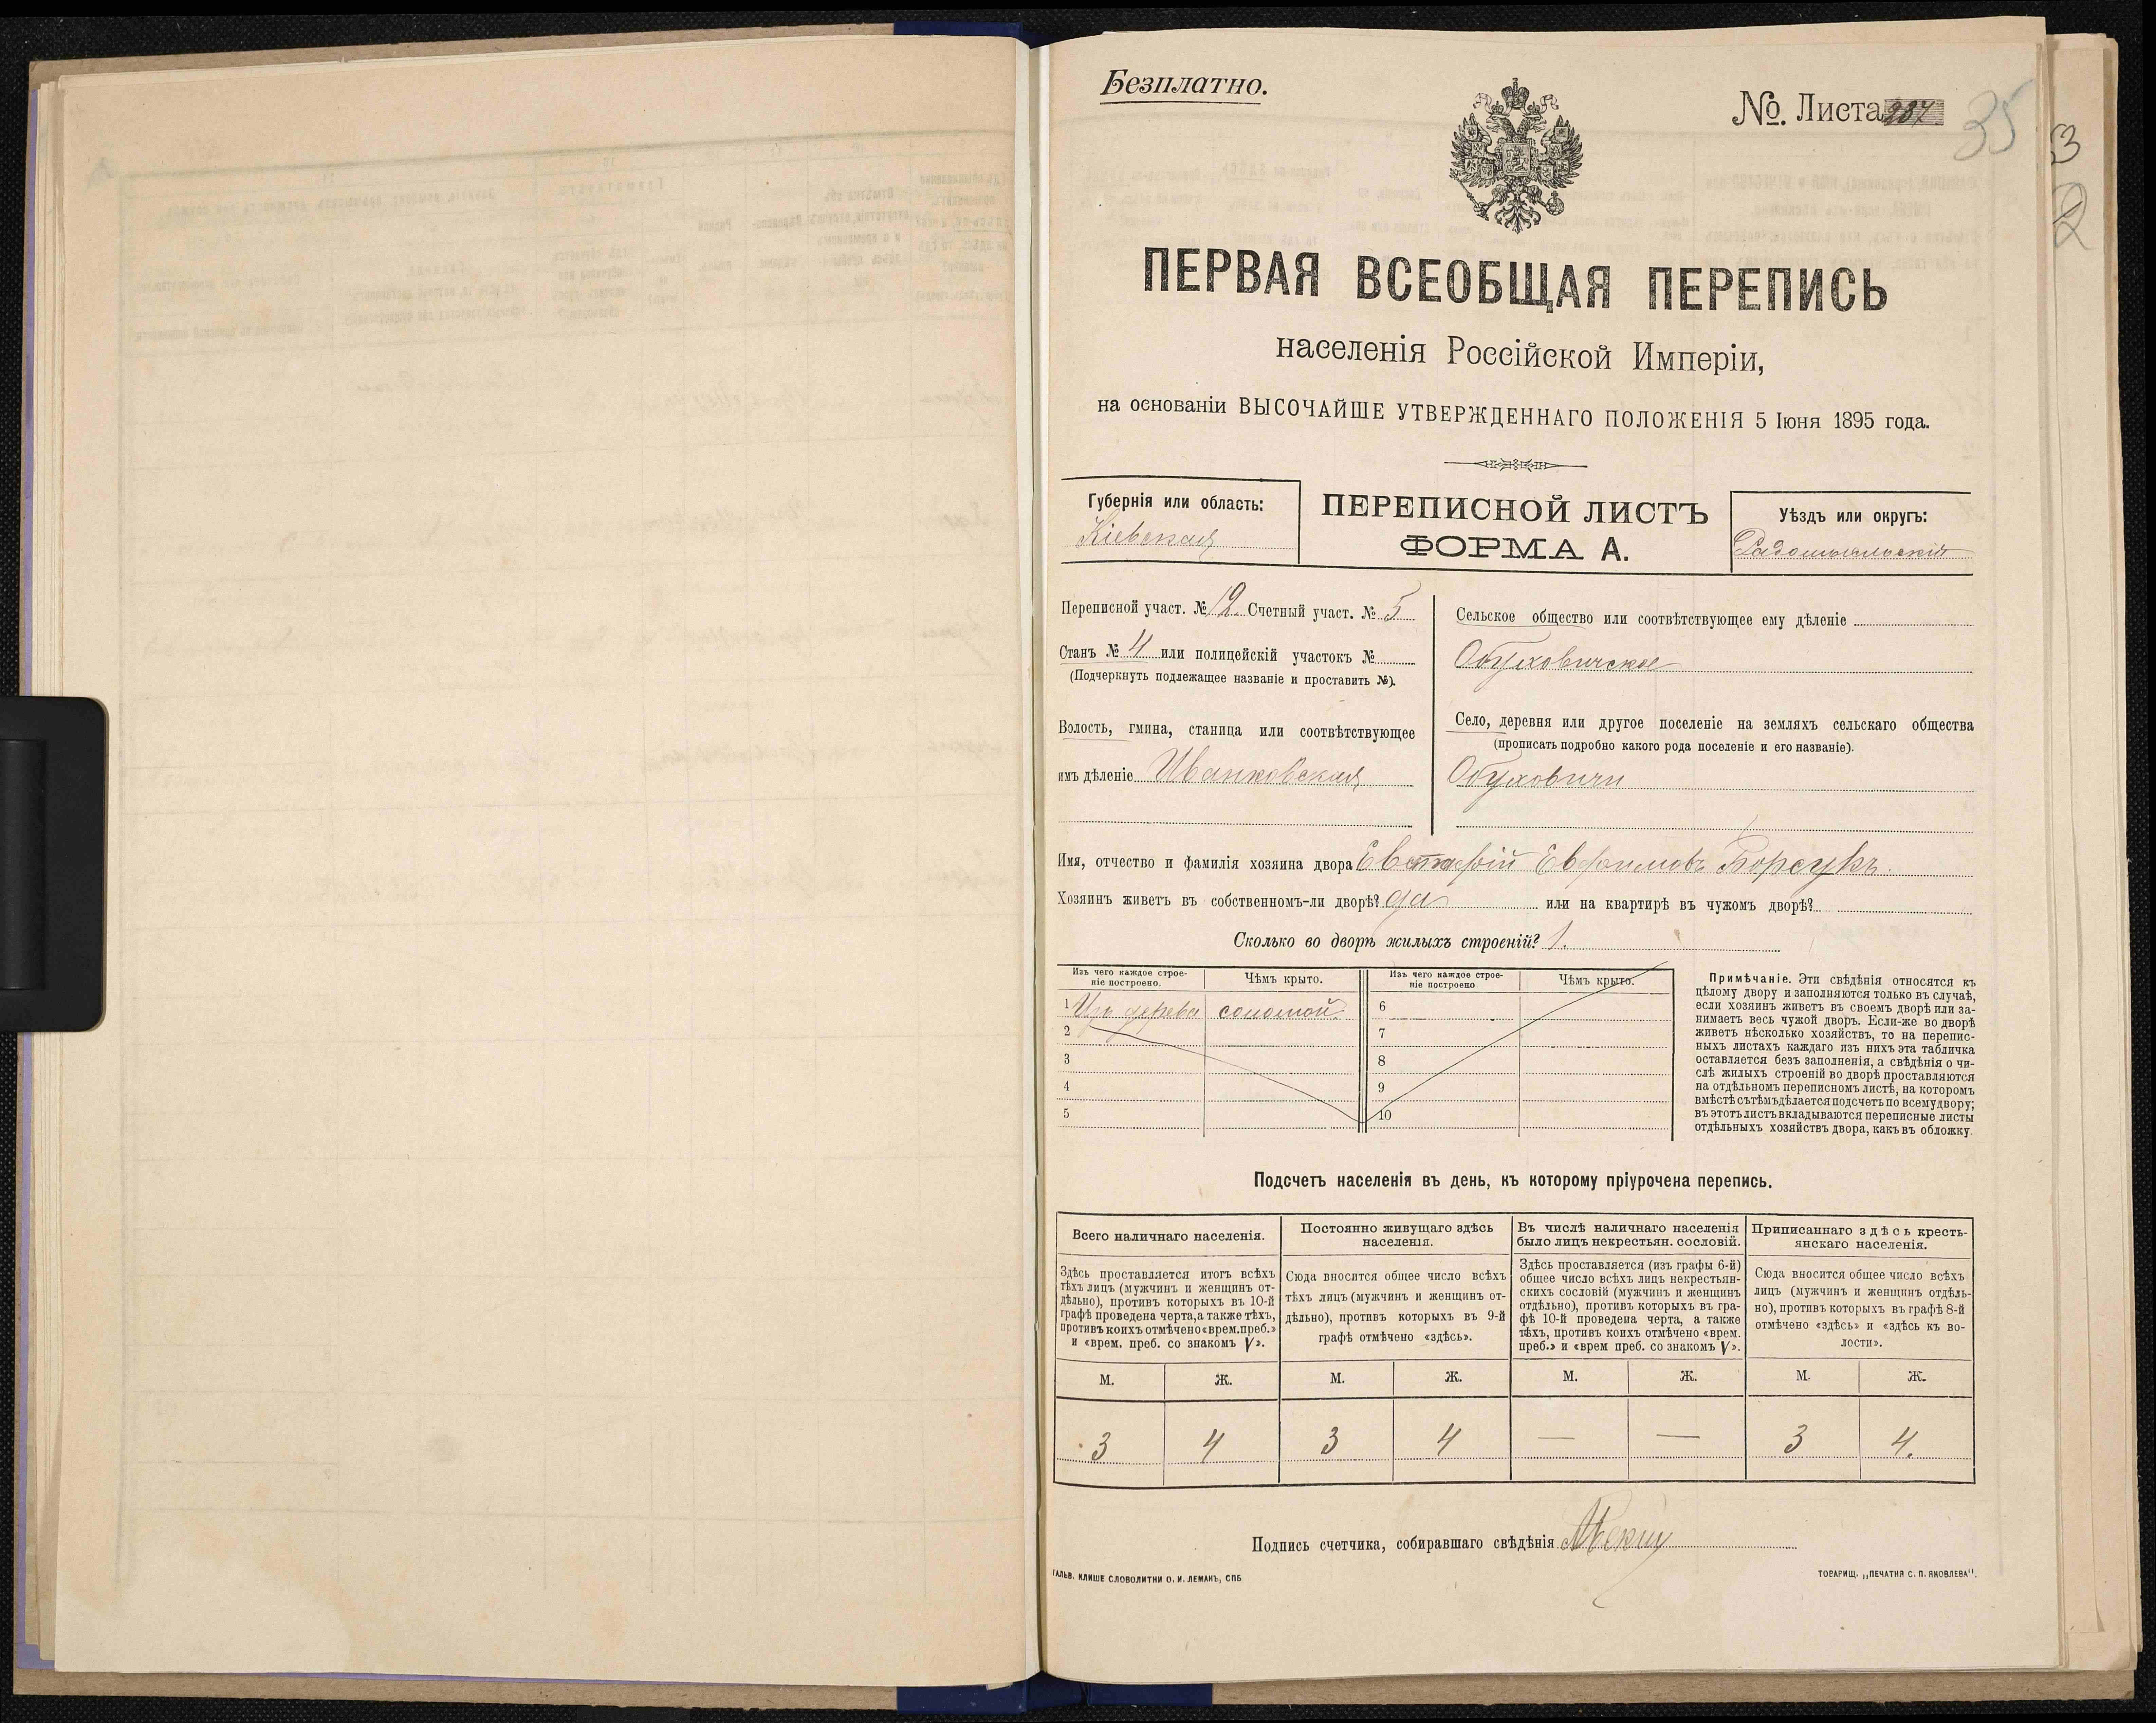 Безплатно.
№ Листа 287
35
ПЕРВАЯ ВСЕОБЩАЯ ПЕРЕПИСЬ
населенія Россійской Имперіи,
на основаніи ВЫСОЧАЙШЕ УТВЕРЖДЕННАГО ПОЛОЖЕНІЯ 5 Іюня 1895 года.
Губернія или область:
Кіевская
ПЕРЕПИСНОЙ ЛИСТЪ
ФОРМА А.
Уѣздъ или округъ:
Радомысльскій
Переписной участ. № 12. Счетный участ. № 5
Станъ № 4 или полицейскій участокъ №
(Подчеркнуть подлежащее названіе и проставить №).
Волость, гмина, станица или соотвѣтствующее
имъ дѣленіе Иванковская
Сельское общество или соотвѣтствующее ему дѣленіе
Обуховичское
Село, деревня или другое поселеніе на земляхъ сельскаго общества
(прописать подробно какого рода поселеніе и его названіе).
Обуховичи
Имя, отчество и фамилія хозяина двора Евстафій Евфимовъ Борсукъ.
Хозяинъ живетъ въ собственномъ-ли дворѣ? да или на квартирѣ въ чужомъ дворѣ?
Сколько во дворѣ жилыхъ строеній? 1.
Изъ чего каждое строе-
ніе построено.
Чѣмъ крыто.
Изъ чего каждое строе-
ніе построено
Чѣмъ крыто.
1 Изъ дерева соломой 6
2 7
3 8
4 9
5 10
Примѣчаніе. Эти свѣдѣнія относятся къ
цѣлому двору и заполняются только въ случаѣ,
если хозяинъ живетъ въ своемъ дворѣ или за-
нимаетъ весь чужой дворъ. Если-же во дворѣ
живетъ нѣсколько хозяйствъ, то на перепис-
ныхъ листахъ каждаго изъ нихъ эта табличка
оставляется безъ заполненія, а свѣдѣнія о чи-
слѣ жилыхъ строеній во дворѣ проставляются
на отдѣльномъ переписномъ листѣ, на которомъ
вмѣстѣ съ тѣмъ дѣлается подсчетъ по всему двору;
въ этотъ листъ вкладываются переписные листы
отдѣльныхъ хозяйствъ двора, какъ въ обложку.
Подсчетъ населенія въ день, къ которому пріурочена перепись.
Всего наличнаго населенія.
Здѣсь проставляется итогъ всѣхъ
тѣхъ лицъ (мужчинъ и женщинъ от-
дѣльно), противъ которыхъ въ 10-й
графѣ проведена черта, а также тѣхъ,
противъ коихъ отмѣчено «врем. преб.»
и «врем. преб. со знакомъ V».
Постоянно живущаго здѣсь
населенія.
Сюда вносится общее число всѣхъ
тѣхъ лицъ (мужчинъ и женщинъ от-
дѣльно), противъ которыхъ въ 9-й
графѣ отмѣчено «здѣсь».
Въ числѣ наличнаго населенія
было лицъ некрестьян. сословій.
Здѣсь проставляется (изъ графы 6-й)
общее число всѣхъ лицъ некрестьян-
скихъ сословій (мужчинъ и женщинъ
отдѣльно), противъ которыхъ въ гра-
фѣ 10-й проведена черта, а также
тѣхъ, противъ коихъ отмѣчено «врем.
преб.» и «врем преб. со знакомъ V».
Приписаннаго здѣсь кресть-
янскаго населенія.
Сюда вносится общее число всѣхъ
лицъ (мужчинъ и женщинъ отдѣль-
но), противъ которыхъ въ графѣ 8-й
отмѣчено «здѣсь» и «здѣсь къ во-
лости».
М. Ж. М. Ж. М. Ж. М. Ж.
3 4 3 4 — — 3 4.
Подпись счетчика, собиравшаго свѣдѣнія
ГАЛЬВ. КЛИШЕ СЛОВОЛИТНИ О. И. ЛЕМАНЪ, СПБ
ТОВАРИЩ. „ПЕЧАТНЯ С. П. ЯКОВЛЕВА".